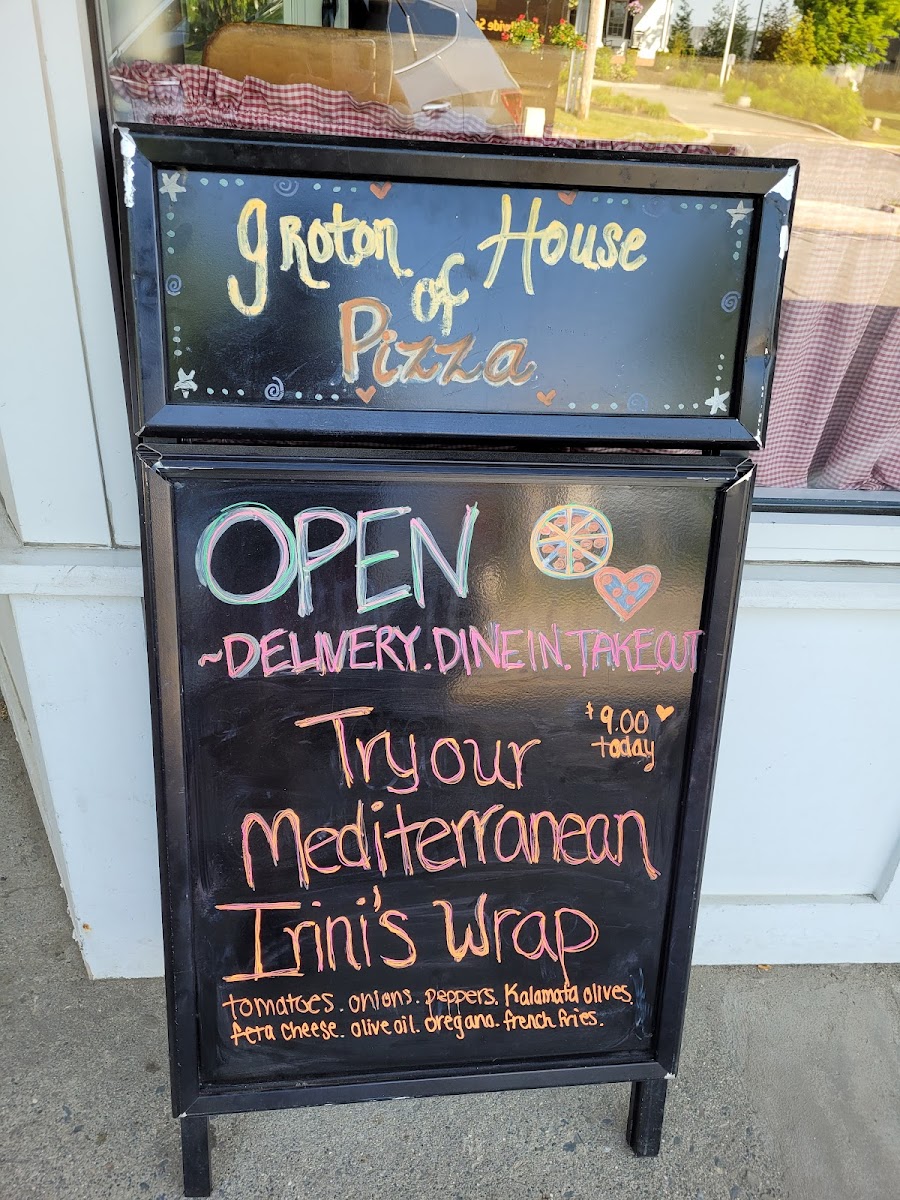 groton House
of
Pizza
OPEN
~DELIVERY.DINE IN.TAKEOUT
$9.00
today
Try our
Mediterranean
Irini's Wrap
tomatoes.onions.peppers.Kalamata olives.
feta cheese.olive oil.oregano.french fries.